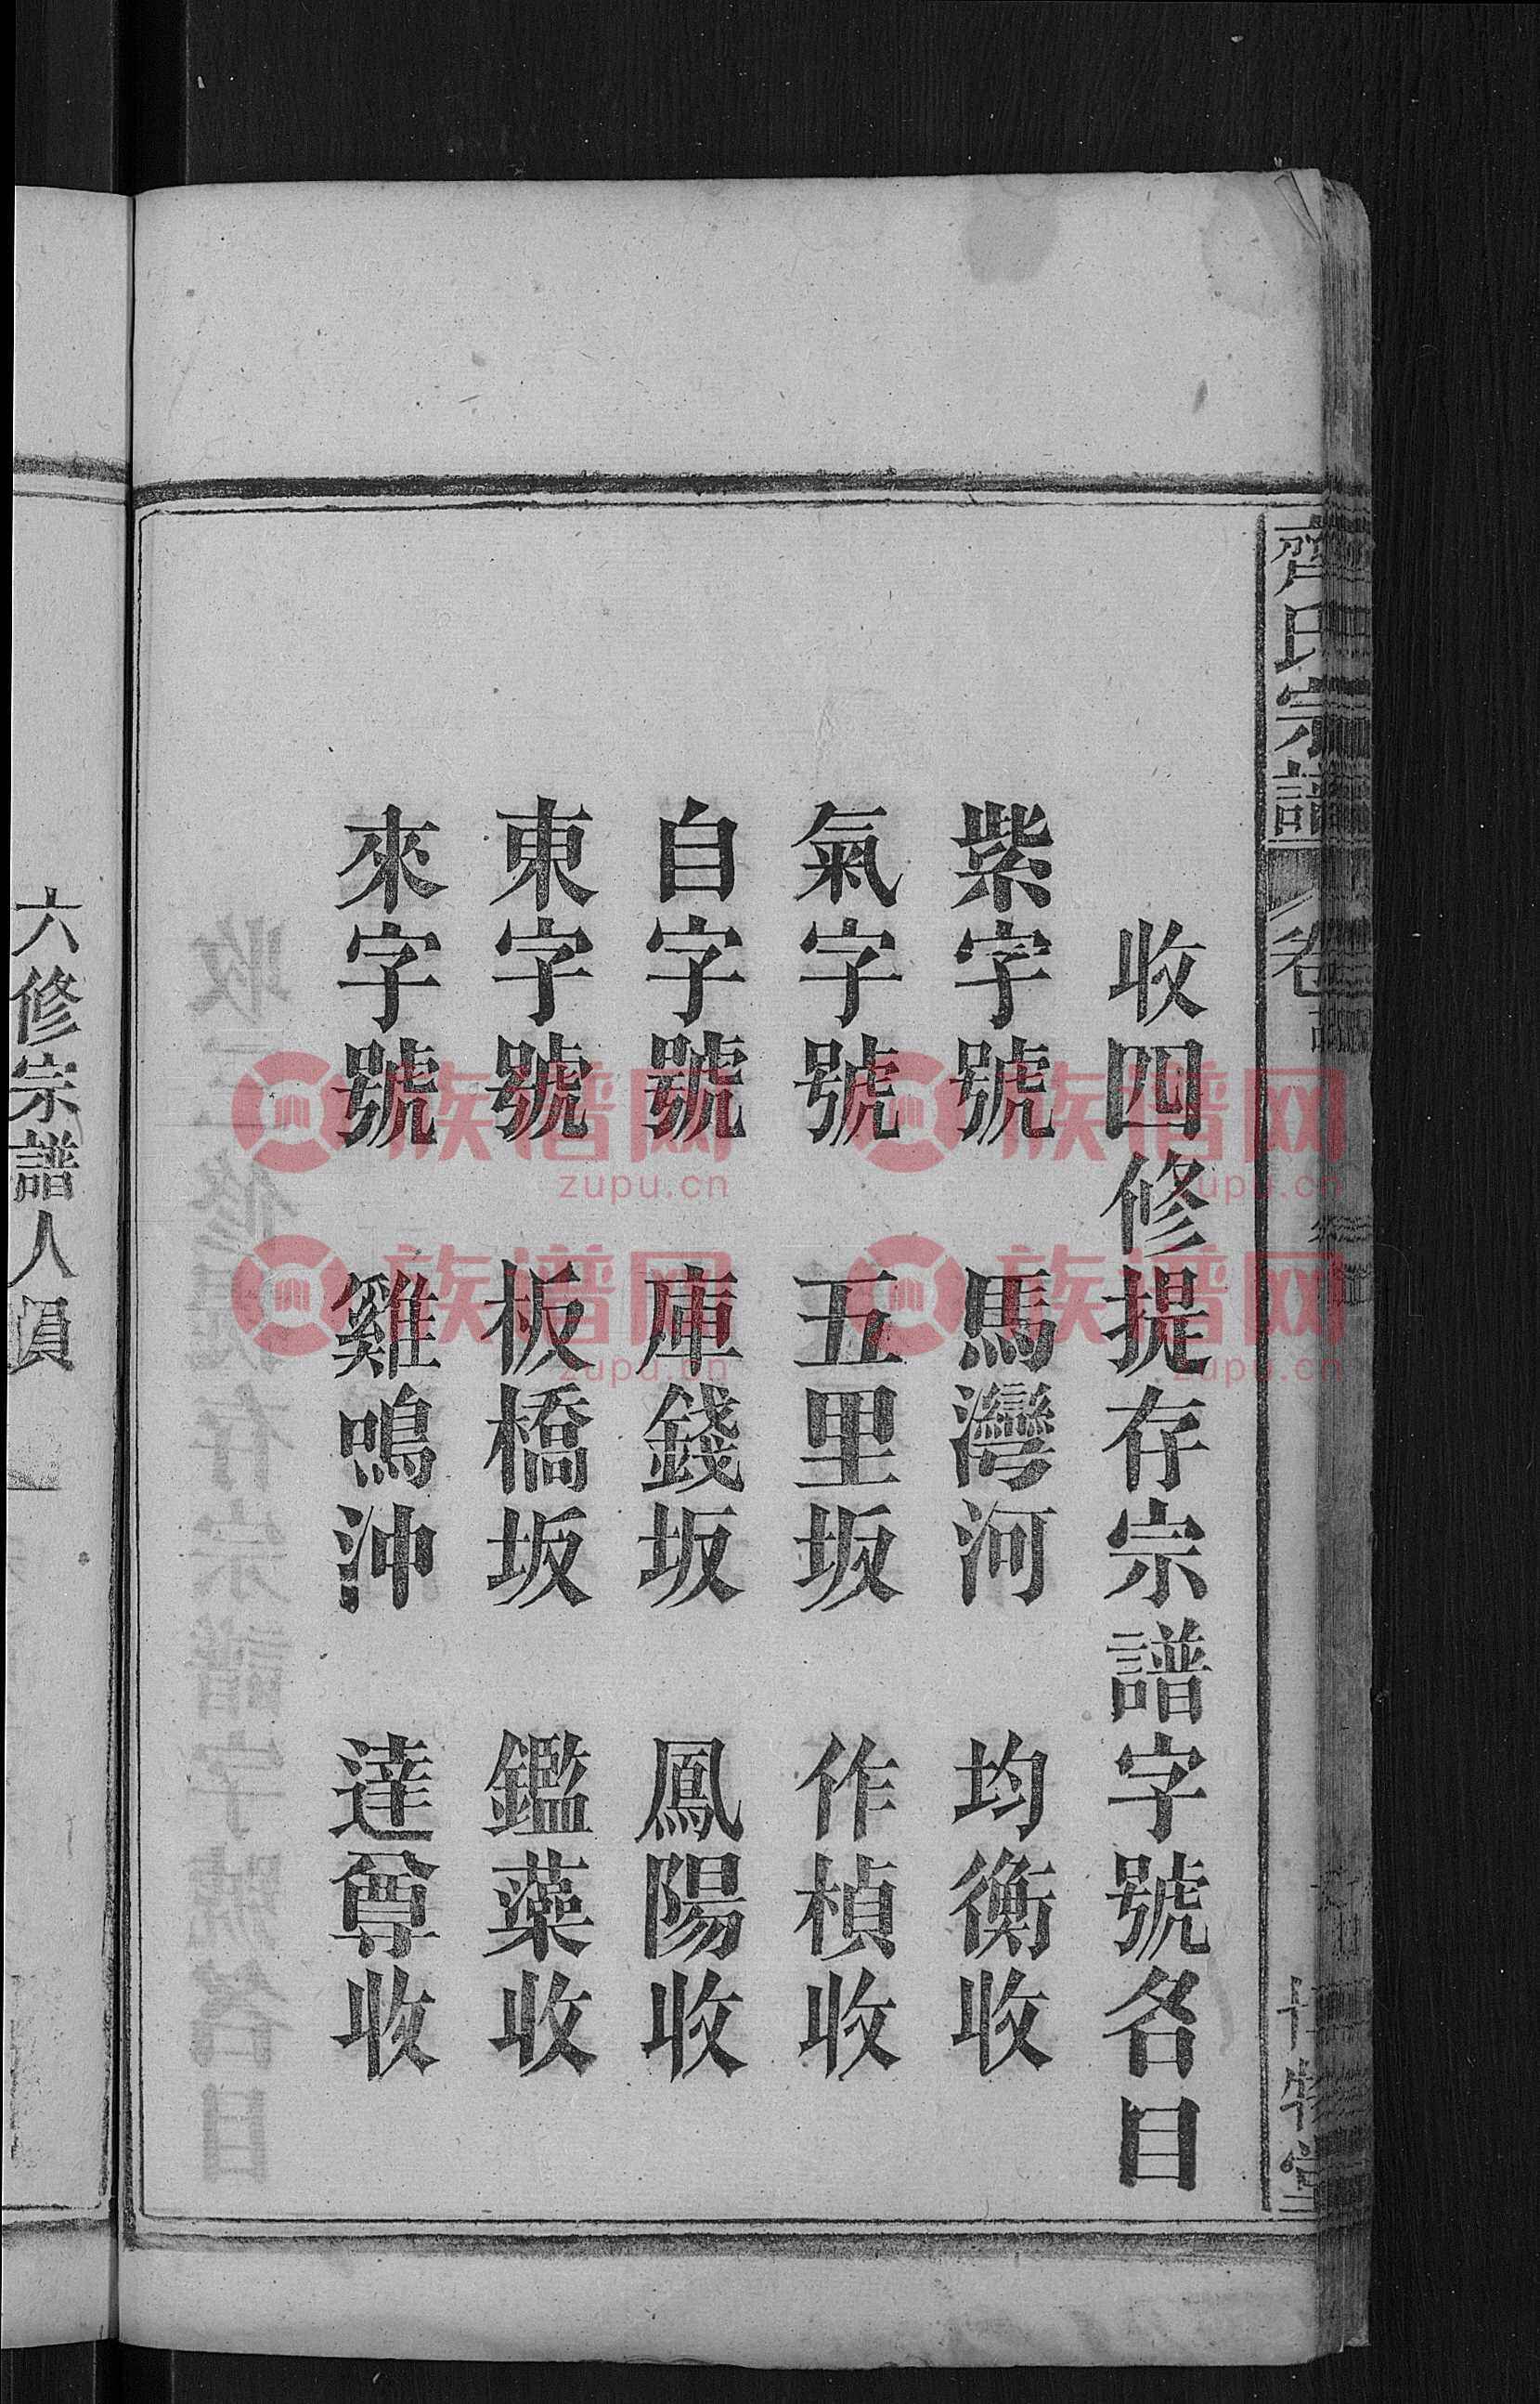 齊氏宗譜
卷
收四修提存宗譜字號名目
紫字號 馬灣河 均衡收
氣字號 五里坂 作楨收
自字號 庫錢坂 鳳陽收
東字號 板橋坂 鑑藻收
來字號 雞鳴沖 達尊收
六修宗譜人員
族谱网
zupu.cn
族谱网
zupu.cn
族谱网
zupu.cn
族谱网
zupu.cn